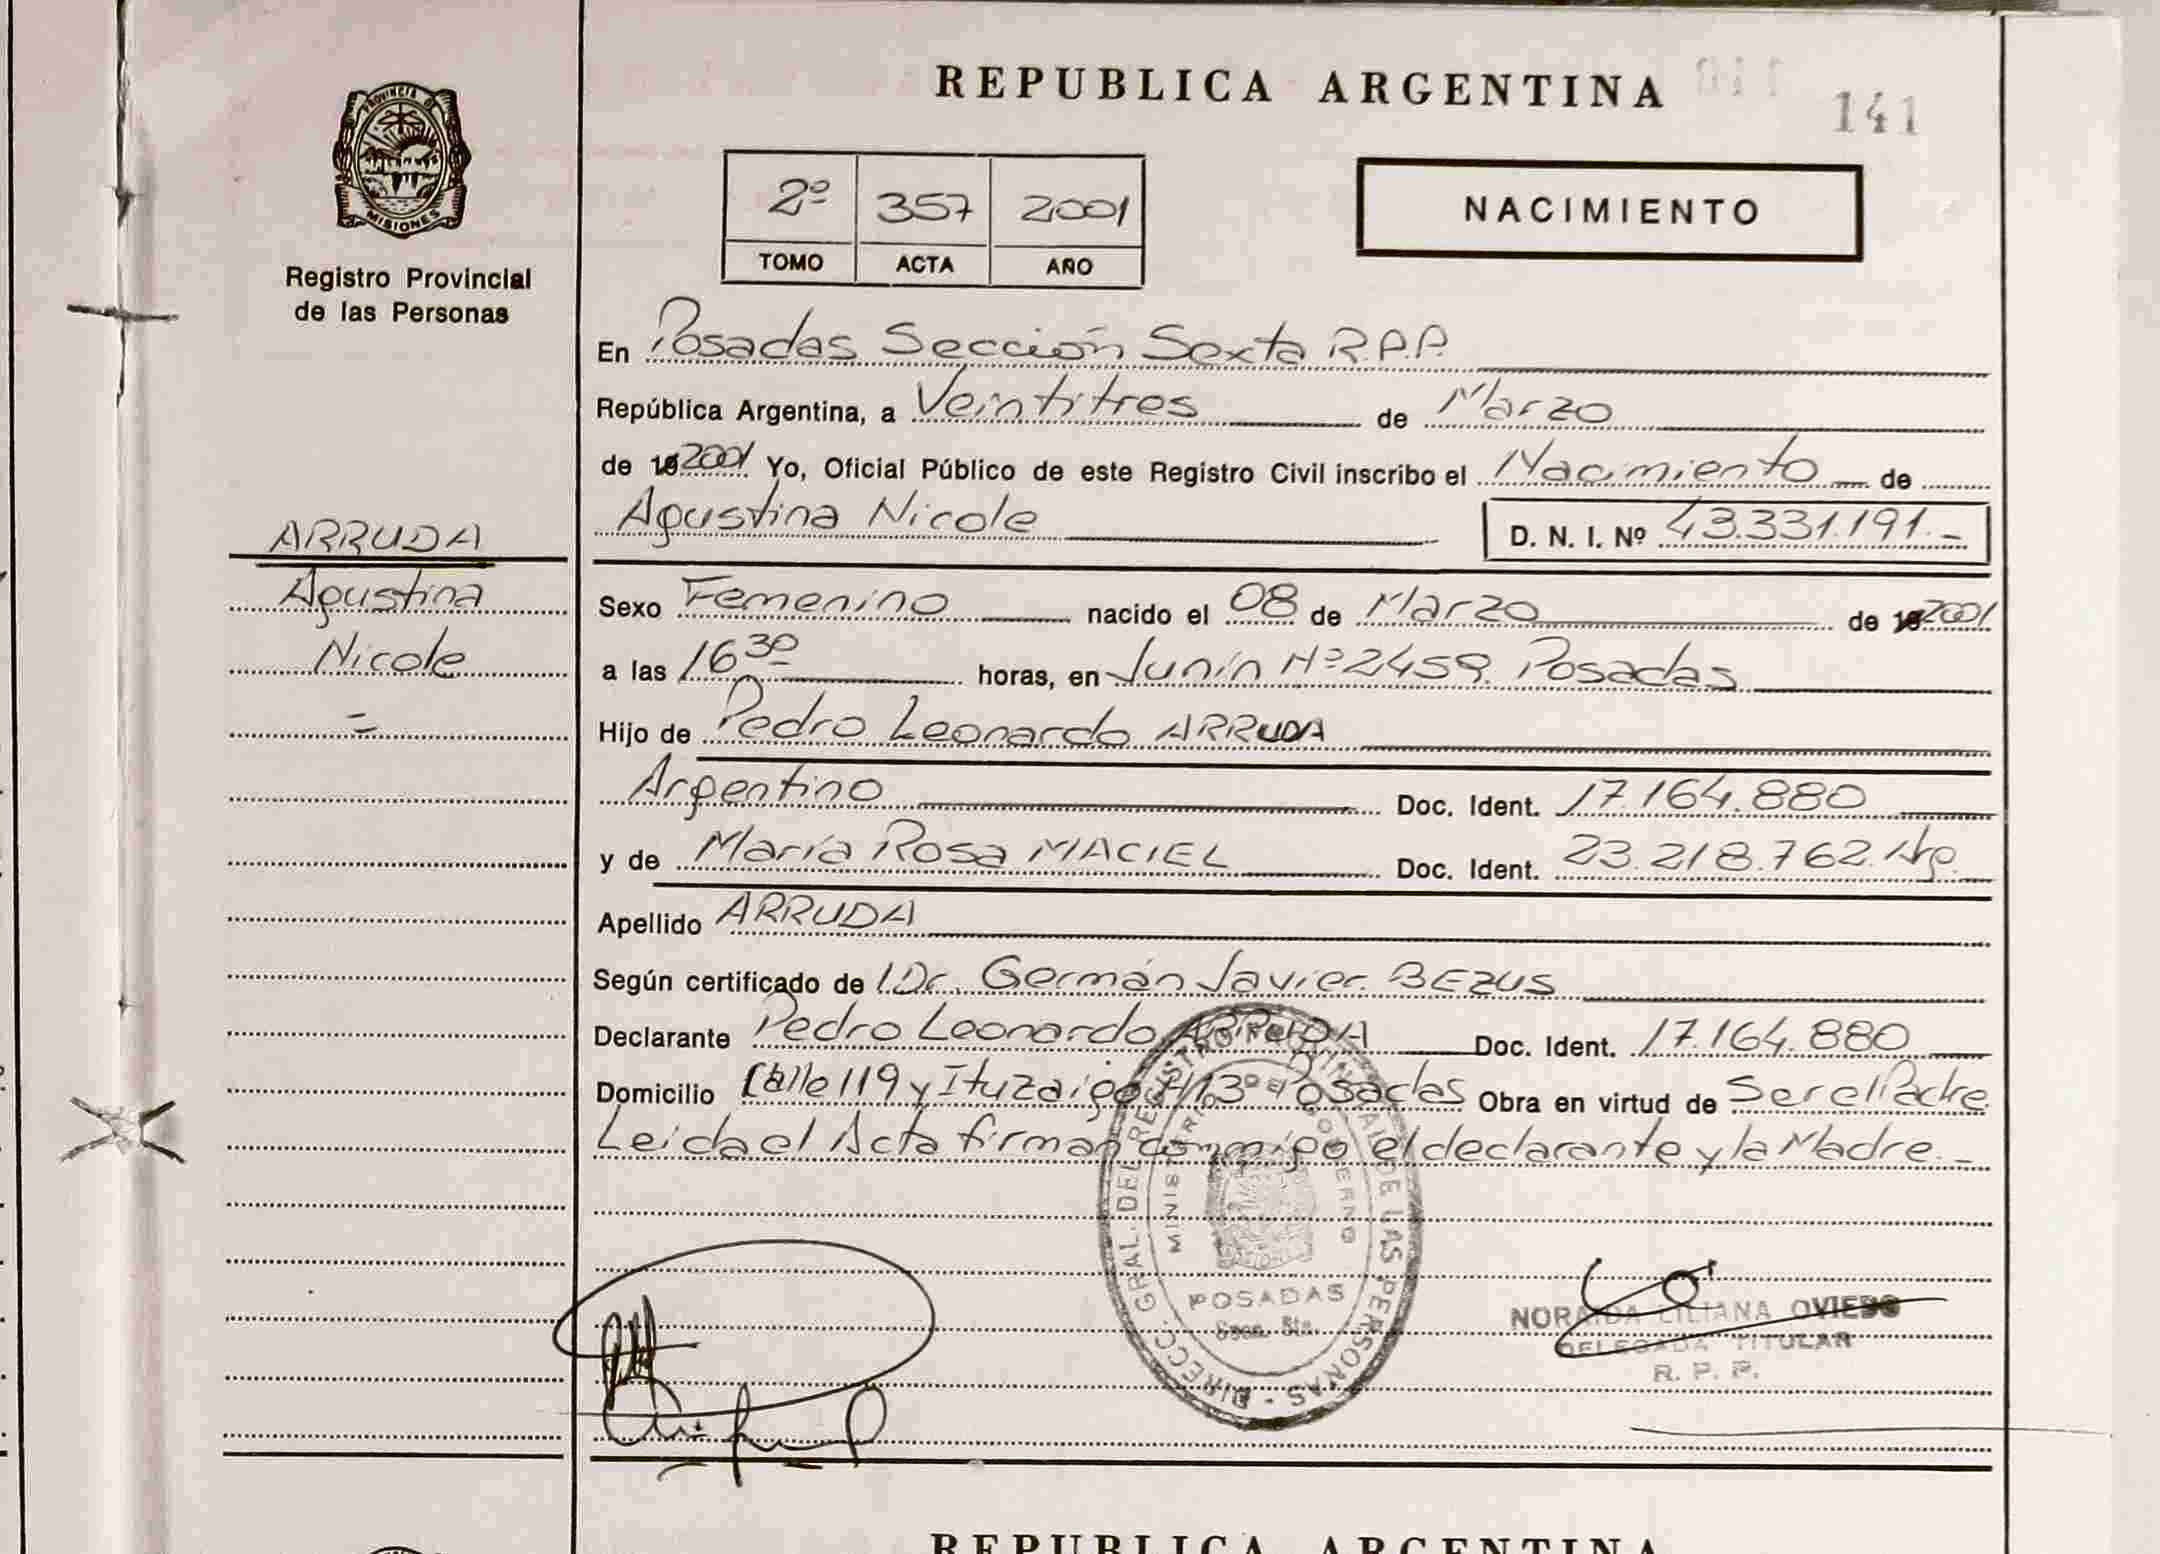 REPUBLICA ARGENTINA
141
PROVINCIA DE
MISIONES
Registro Provincial
de las Personas
2º 357 2001
TOMO ACTA AÑO
NACIMIENTO
En Posadas Sección Sexta R.P.P.
República Argentina, a Veintitres de Marzo
de 19 2001 Yo, Oficial Público de este Registro Civil inscribo el Nacimiento de
Agustina Nicole D. N. I. Nº 43.331.191.-
ARRUDA
Agustina
Nicole
Sexo Femenino nacido el 08 de Marzo de 19 2001
a las 16 30 horas, en Junín Nº 2459. Posadas
Hijo de Pedro Leonardo ARRUDA
Argentino Doc. Ident. 17.164.880
y de María Rosa MACIEL Doc. Ident. 23.218.762
Apellido ARRUDA
Según certificado de Dr. Germán Javier BEZUS
Declarante Pedro Leonardo ARRUDA Doc. Ident. 17.164.880
Domicilio Calle 119 y Ituzaigo Posadas Obra en virtud de Ser el Padre
Leida el Acta firman conmigo el declarante y la Madre.-
DIRECC. GRAL. DEL REGISTRO PROVINCIAL DE LAS PERSONAS
MINISTERIO DE GOBIERNO
POSADAS
Secc. 6ta.
NORAIDA LILIANA OVIEDO
DELEGADA TITULAR
R. P. P.
REPUBLICA ARGENTINA